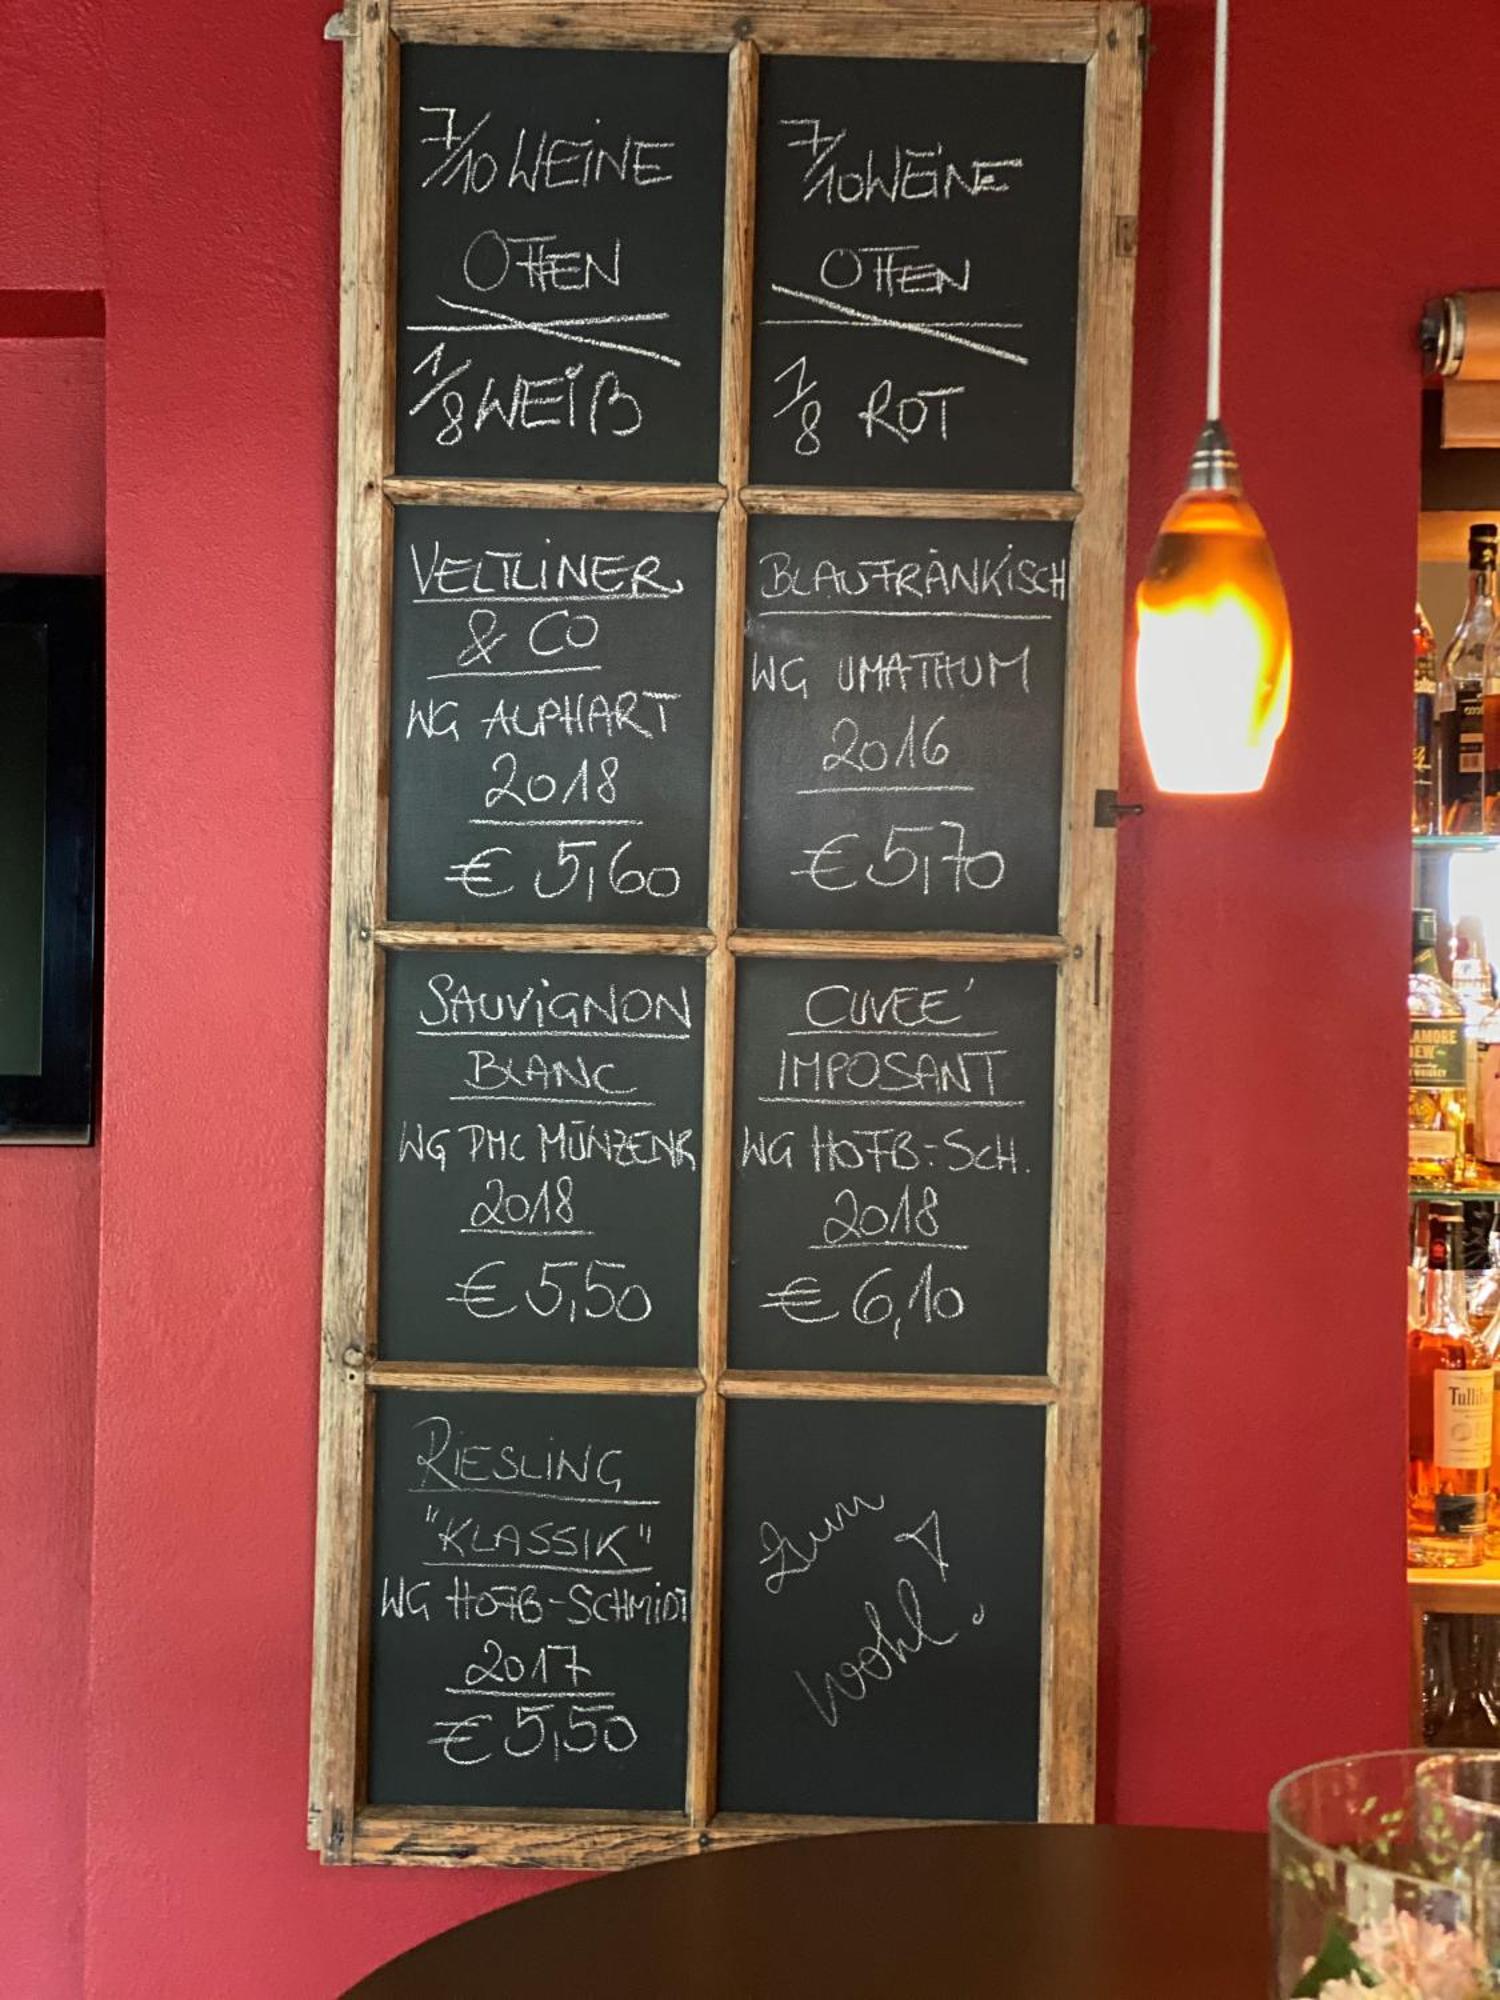 7/10 WEINE
OFFEN
1/8 WEIß
7/10 WEINE
OFFEN
1/8 ROT
VELTLINER
& CO
WG ALPHART
2018
€ 5,60
BLAUFRÄNKISCH
WG UMATHUM
2016
€ 5,70
SAUVIGNON
BLANC
WG PMC MÜNZENR
2018
€ 5,50
CUVEE´
IMPOSANT
WG HOFB-SCH.
2018
€ 6,10
RIESLING
"KLASSIK"
WG HOFB-SCHMIDT
2017
€ 5,50
Zum
Wohl!
AMORE
EW
WHISKEY
Tulli